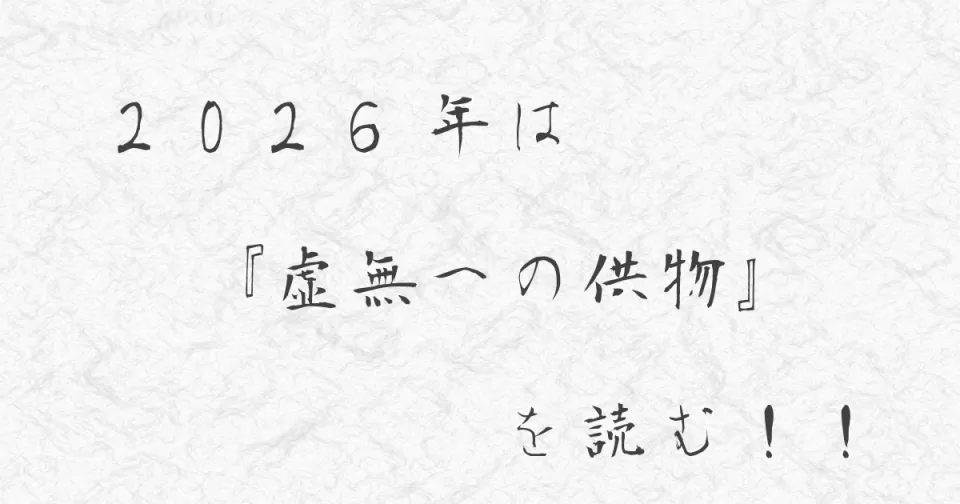 ２０２６年は
『虚無への供物』
を読む！！